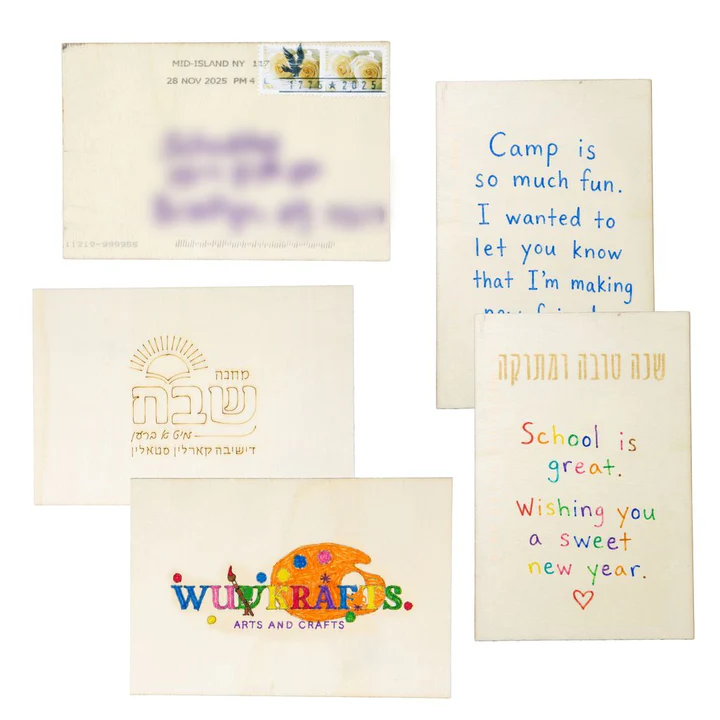 MID-ISLAND NY 117
28 NOV 2025 PM 4 L
1775 ★ 2025
Camp is
so much fun.
I wanted to
let you know
that I'm making
שנה טובה ומתוקה
School is
great.
Wishing you
a sweet
new year.
מחנה
שבה
מיט א ברען
דישיבה קארלין סטאלין
WUNKRAFTS.
ARTS AND CRAFTS